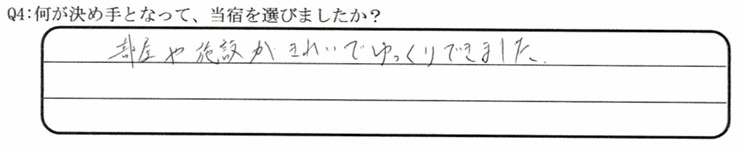 Q4:何が決め手となって、当宿を選びましたか？
部屋や施設がきれいでゆっくりできました.